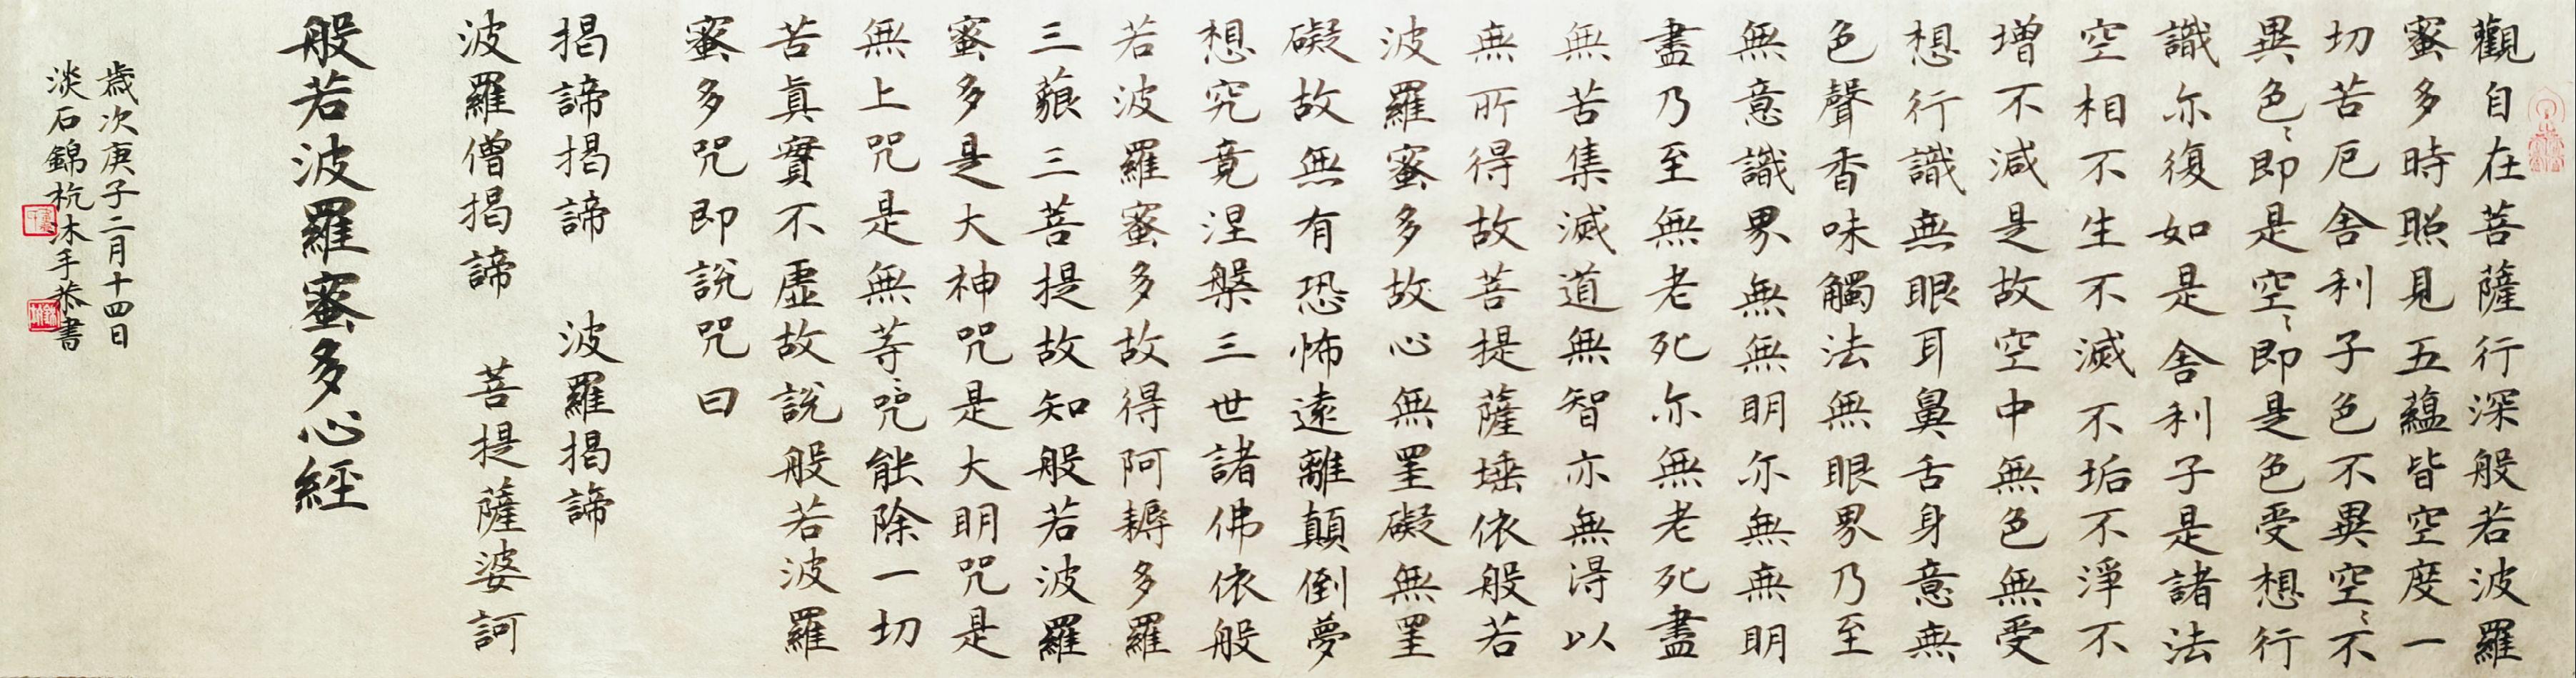 觀自在菩薩行深般若波羅
蜜多時照見五蘊皆空度一
切苦厄舍利子色不異空〻不
異色〻即是空〻即是色受想行
識亦復如是舍利子是諸法
空相不生不滅不垢不淨不
增不減是故空中無色無受
想行識無眼耳鼻舌身意無
色聲香味觸法無眼界乃至
無意識界無無明亦無無明
盡乃至無老死亦無老死盡
無苦集滅道無智亦無得以
無所得故菩提薩埵依般若
波羅蜜多故心無罣礙無罣
礙故無有恐怖遠離顛倒夢
想究竟涅槃三世諸佛依般
若波羅蜜多故得阿耨多羅
三藐三菩提故知般若波羅
蜜多是大神咒是大明咒是
無上咒是無等〻咒能除一切
苦真實不虛故說般若波羅
蜜多咒即說咒曰
揭諦揭諦 波羅揭諦
波羅僧揭諦 菩提薩婆訶
般若波羅蜜多心經
歲次庚子二月十四日
淡石錦杭沐手恭書